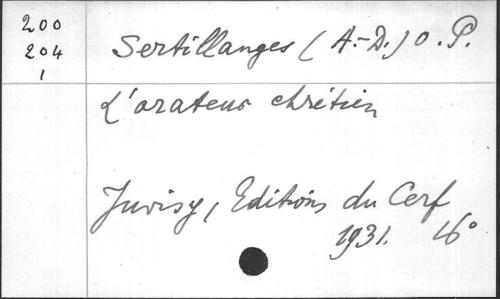 200
204
1
Sertillanges (A.-D.) O.P.
L'orateur chrétien
Juvisy, Editions du Cerf
1931. 16°